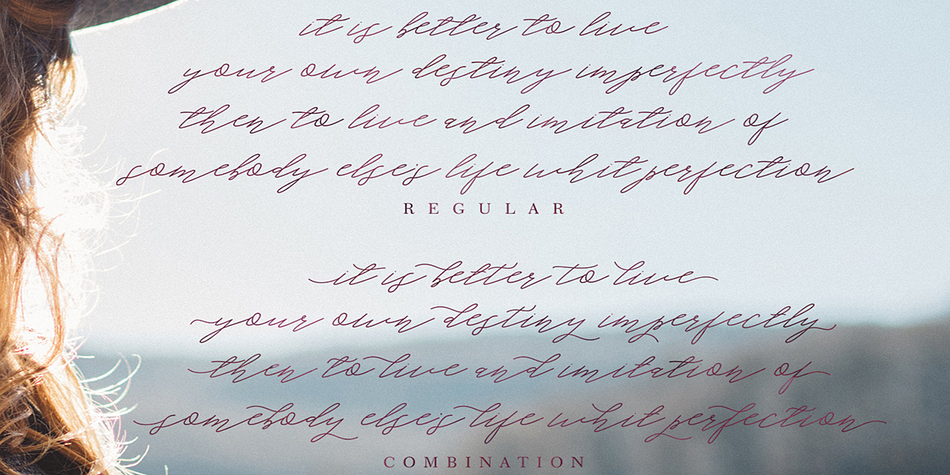 it is better to live
your own destiny imperfectly
then to live and imitation of
somebody else's life whit perfection
REGULAR
it is better to live
your own destiny imperfectly
then to live and imitation of
somebody else's life whit perfection
COMBINATION